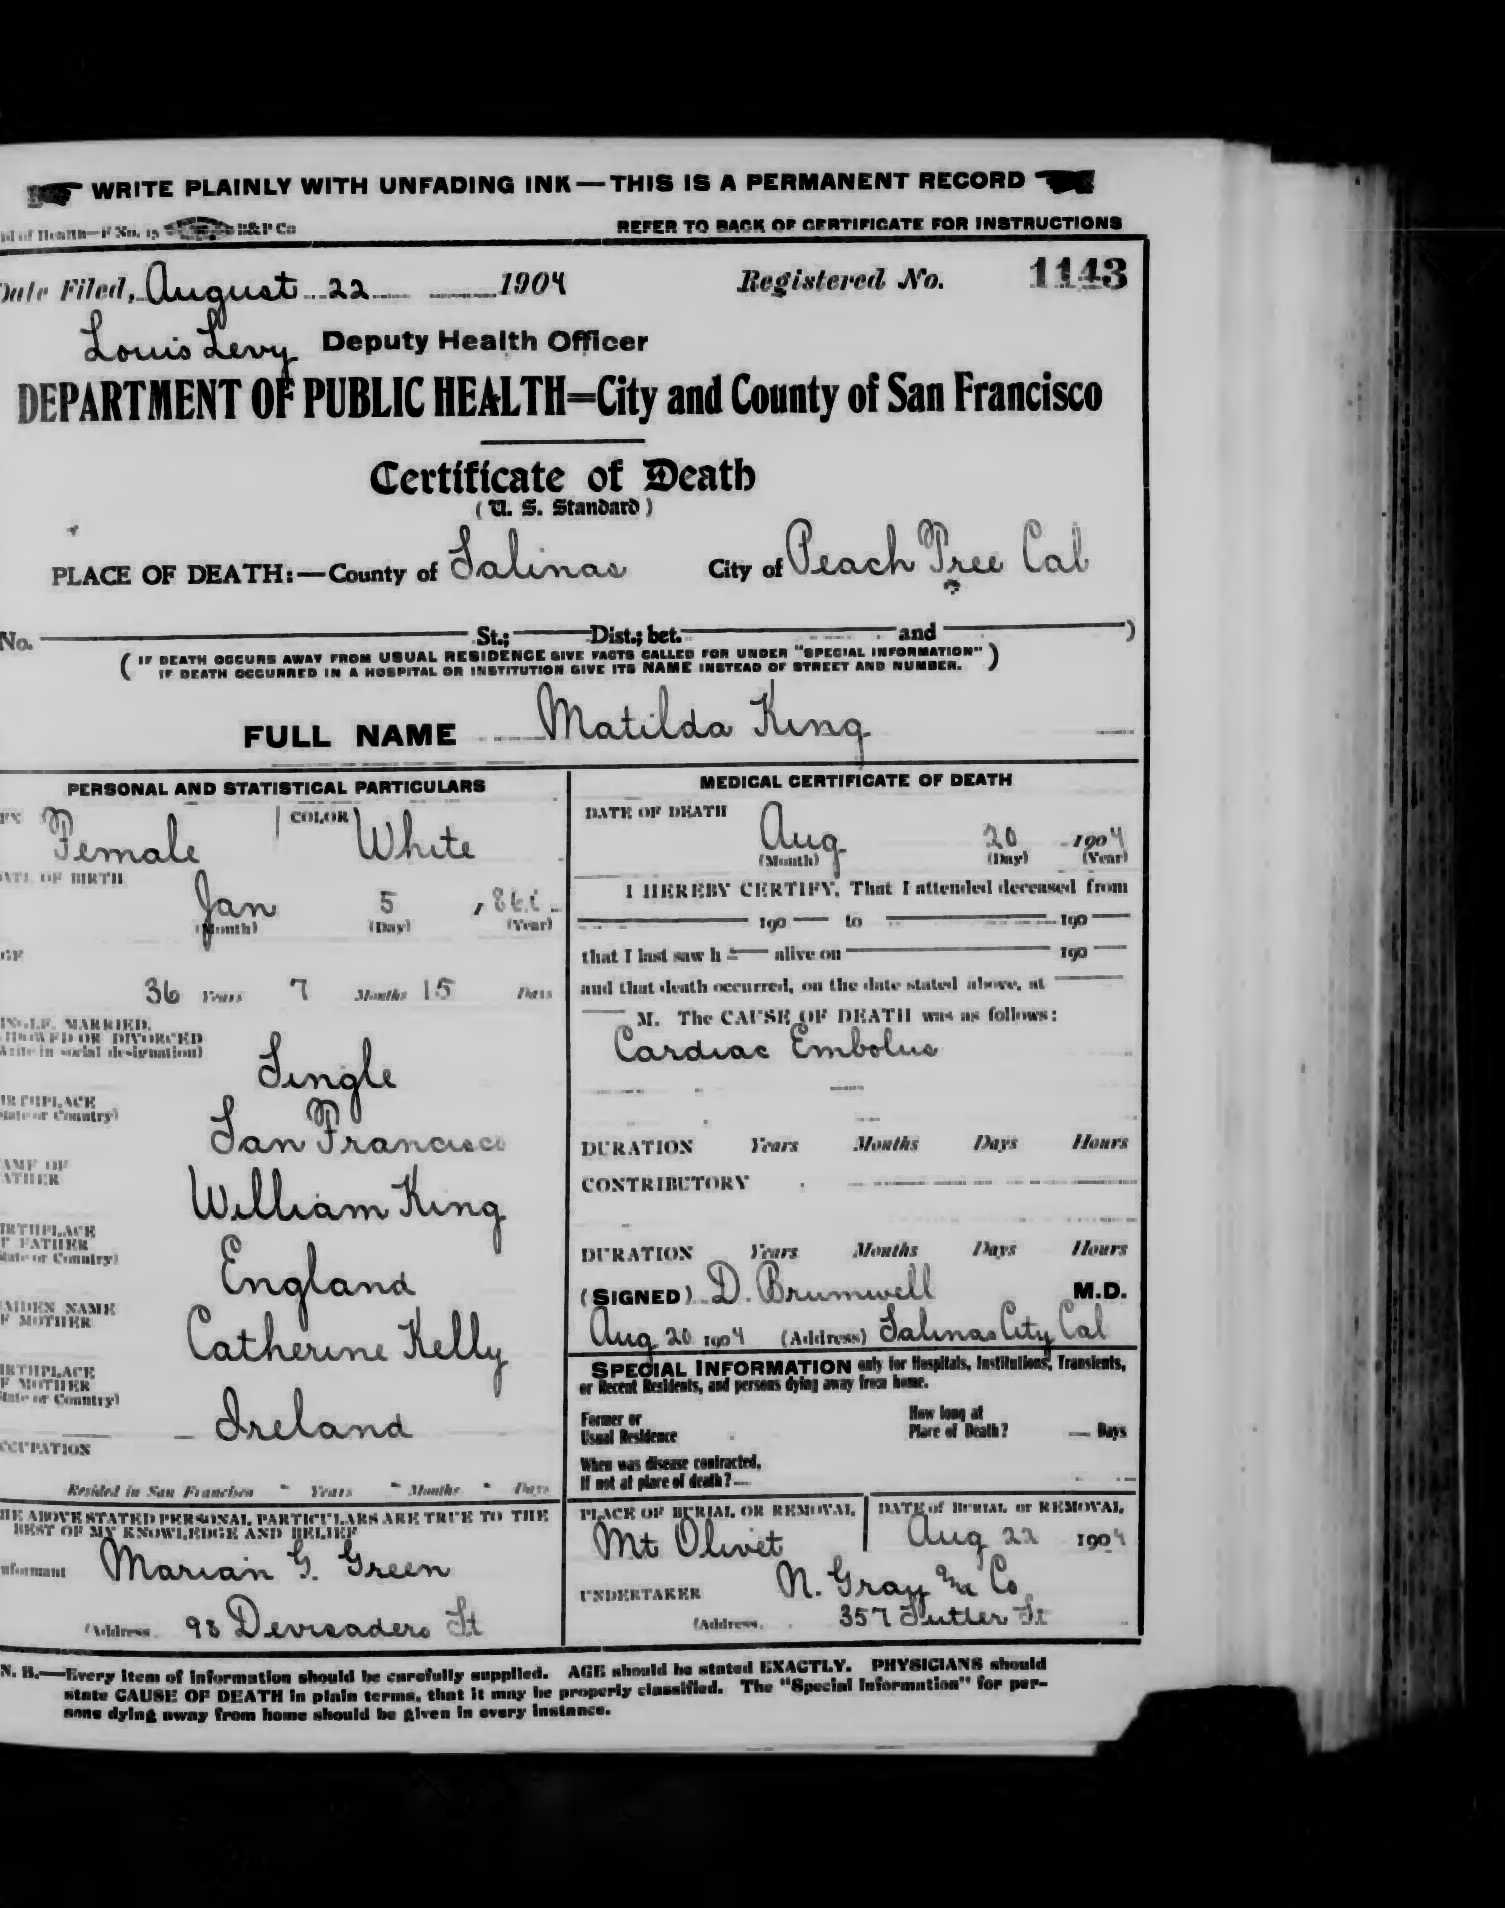 WRITE PLAINLY WITH UNFADING INK—THIS IS A PERMANENT RECORD
of Health—F No. 15 B&P Co REFER TO BACK OF CERTIFICATE FOR INSTRUCTIONS
Date Filed, August 22 1904 Registered No. 1143
Louis Levy Deputy Health Officer
DEPARTMENT OF PUBLIC HEALTH=City and County of San Francisco
Certificate of Death
(U. S. Standard)
PLACE OF DEATH:—County of Salinas City of Peach Tree Cal
No. St.; Dist.; bet. and )
( IF DEATH OCCURS AWAY FROM USUAL RESIDENCE GIVE FACTS CALLED FOR UNDER "SPECIAL INFORMATION" )
IF DEATH OCCURRED IN A HOSPITAL OR INSTITUTION GIVE ITS NAME INSTEAD OF STREET AND NUMBER.
FULL NAME Matilda King
PERSONAL AND STATISTICAL PARTICULARS
EX Female COLOR White
ATE OF BIRTH
Jan 5 , 86
(Month) (Day) (Year)
GE
36 Years 7 Months 15 Days
INGLE, MARRIED,
IDOWED OR DIVORCED
Write in social designation)
Single
IRTHPLACE
State or Country)
San Francisco
AME OF
ATHER
William King
IRTHPLACE
F FATHER
State or Country)
England
AIDEN NAME
F MOTHER
Catherine Kelly
IRTHPLACE
F MOTHER
State or Country)
Ireland
CCUPATION
Resided in San Francisco - Years - Months - Days
HE ABOVE STATED PERSONAL PARTICULARS ARE TRUE TO THE
BEST OF MY KNOWLEDGE AND BELIEF
nformant Marian G. Green
(Address 98 Devisadero St
MEDICAL CERTIFICATE OF DEATH
DATE OF DEATH
Aug 20 1904
(Month) (Day) (Year)
I HEREBY CERTIFY, That I attended deceased from
190 to 190
that I last saw h alive on 190
and that death occurred, on the date stated above, at
M. The CAUSE OF DEATH was as follows:
Cardiac Embolus
DURATION Years Months Days Hours
CONTRIBUTORY
DURATION Years Months Days Hours
(SIGNED) D. Brumwell M.D.
Aug 20 1904 (Address) Salinas City Cal
SPECIAL INFORMATION only for Hospitals, Institutions, Transients,
or Recent Residents, and persons dying away from home.
Former or
Usual Residence
How long at
Place of Death? Days
When was disease contracted,
If not at place of death?
PLACE OF BURIAL OR REMOVAL
Mt Olivet
DATE of BURIAL or REMOVAL
Aug 22 1904
UNDERTAKER N. Gray & Co
(Address. 357 Sutter St
N. B.—Every item of information should be carefully supplied. AGE should be stated EXACTLY. PHYSICIANS should
state CAUSE OF DEATH in plain terms, that it may be properly classified. The "Special Information" for per-
sons dying away from home should be given in every instance.